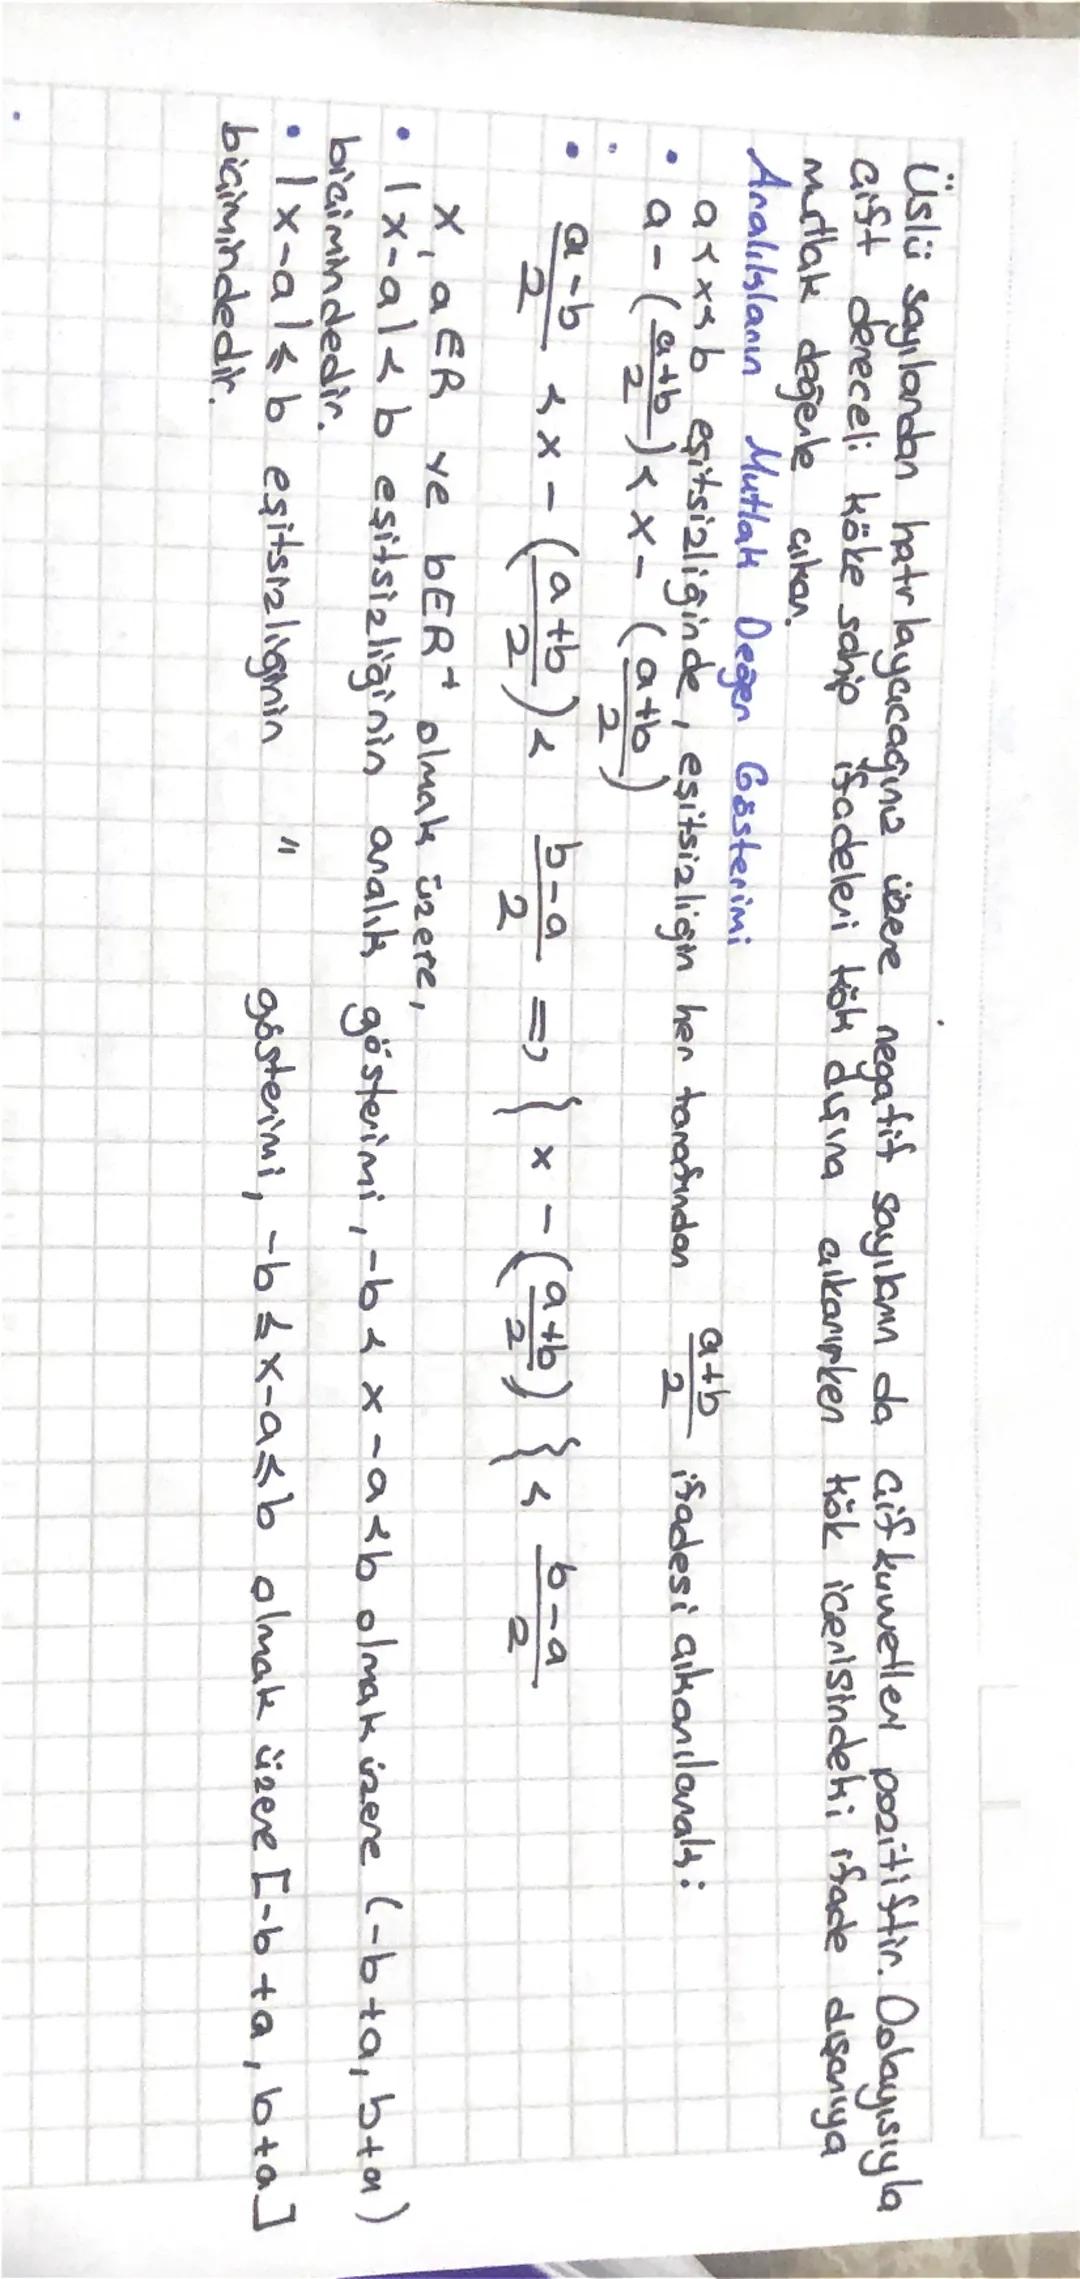 Üslü sayılardan hatırlayacağınız üzere negatif sayıların da çift kuvvetleri pozitiftir. Dolayısıyla
çift dereceli köke sahip ifadeleri kök dışına çıkarırken kök içerisindeki ifade dışarıya
mutlak değerle çıkar.
Aralıkların Mutlak Değer Gösterimi
a < x < b eşitsizliğinde, eşitsizliğin her tarafından (a+b)/2 ifadesi çıkarılarak:
• a - ((a+b)/2) < x - ((a+b)/2)
• (a-b)/2 < x - ((a+b)/2) < (b-a)/2 => { x - ((a+b)/2) } < (b-a)/2
x, a ∈ R ve b ∈ R⁺ olmak üzere,
• |x-a| < b eşitsizliğinin aralık gösterimi, -b < x-a < b olmak üzere (-b+a, b+a)
biçimindedir.
• |x-a| ≤ b eşitsizliğinin " gösterimi, -b ≤ x-a ≤ b olmak üzere [-b+a, b+a]
biçimindedir.